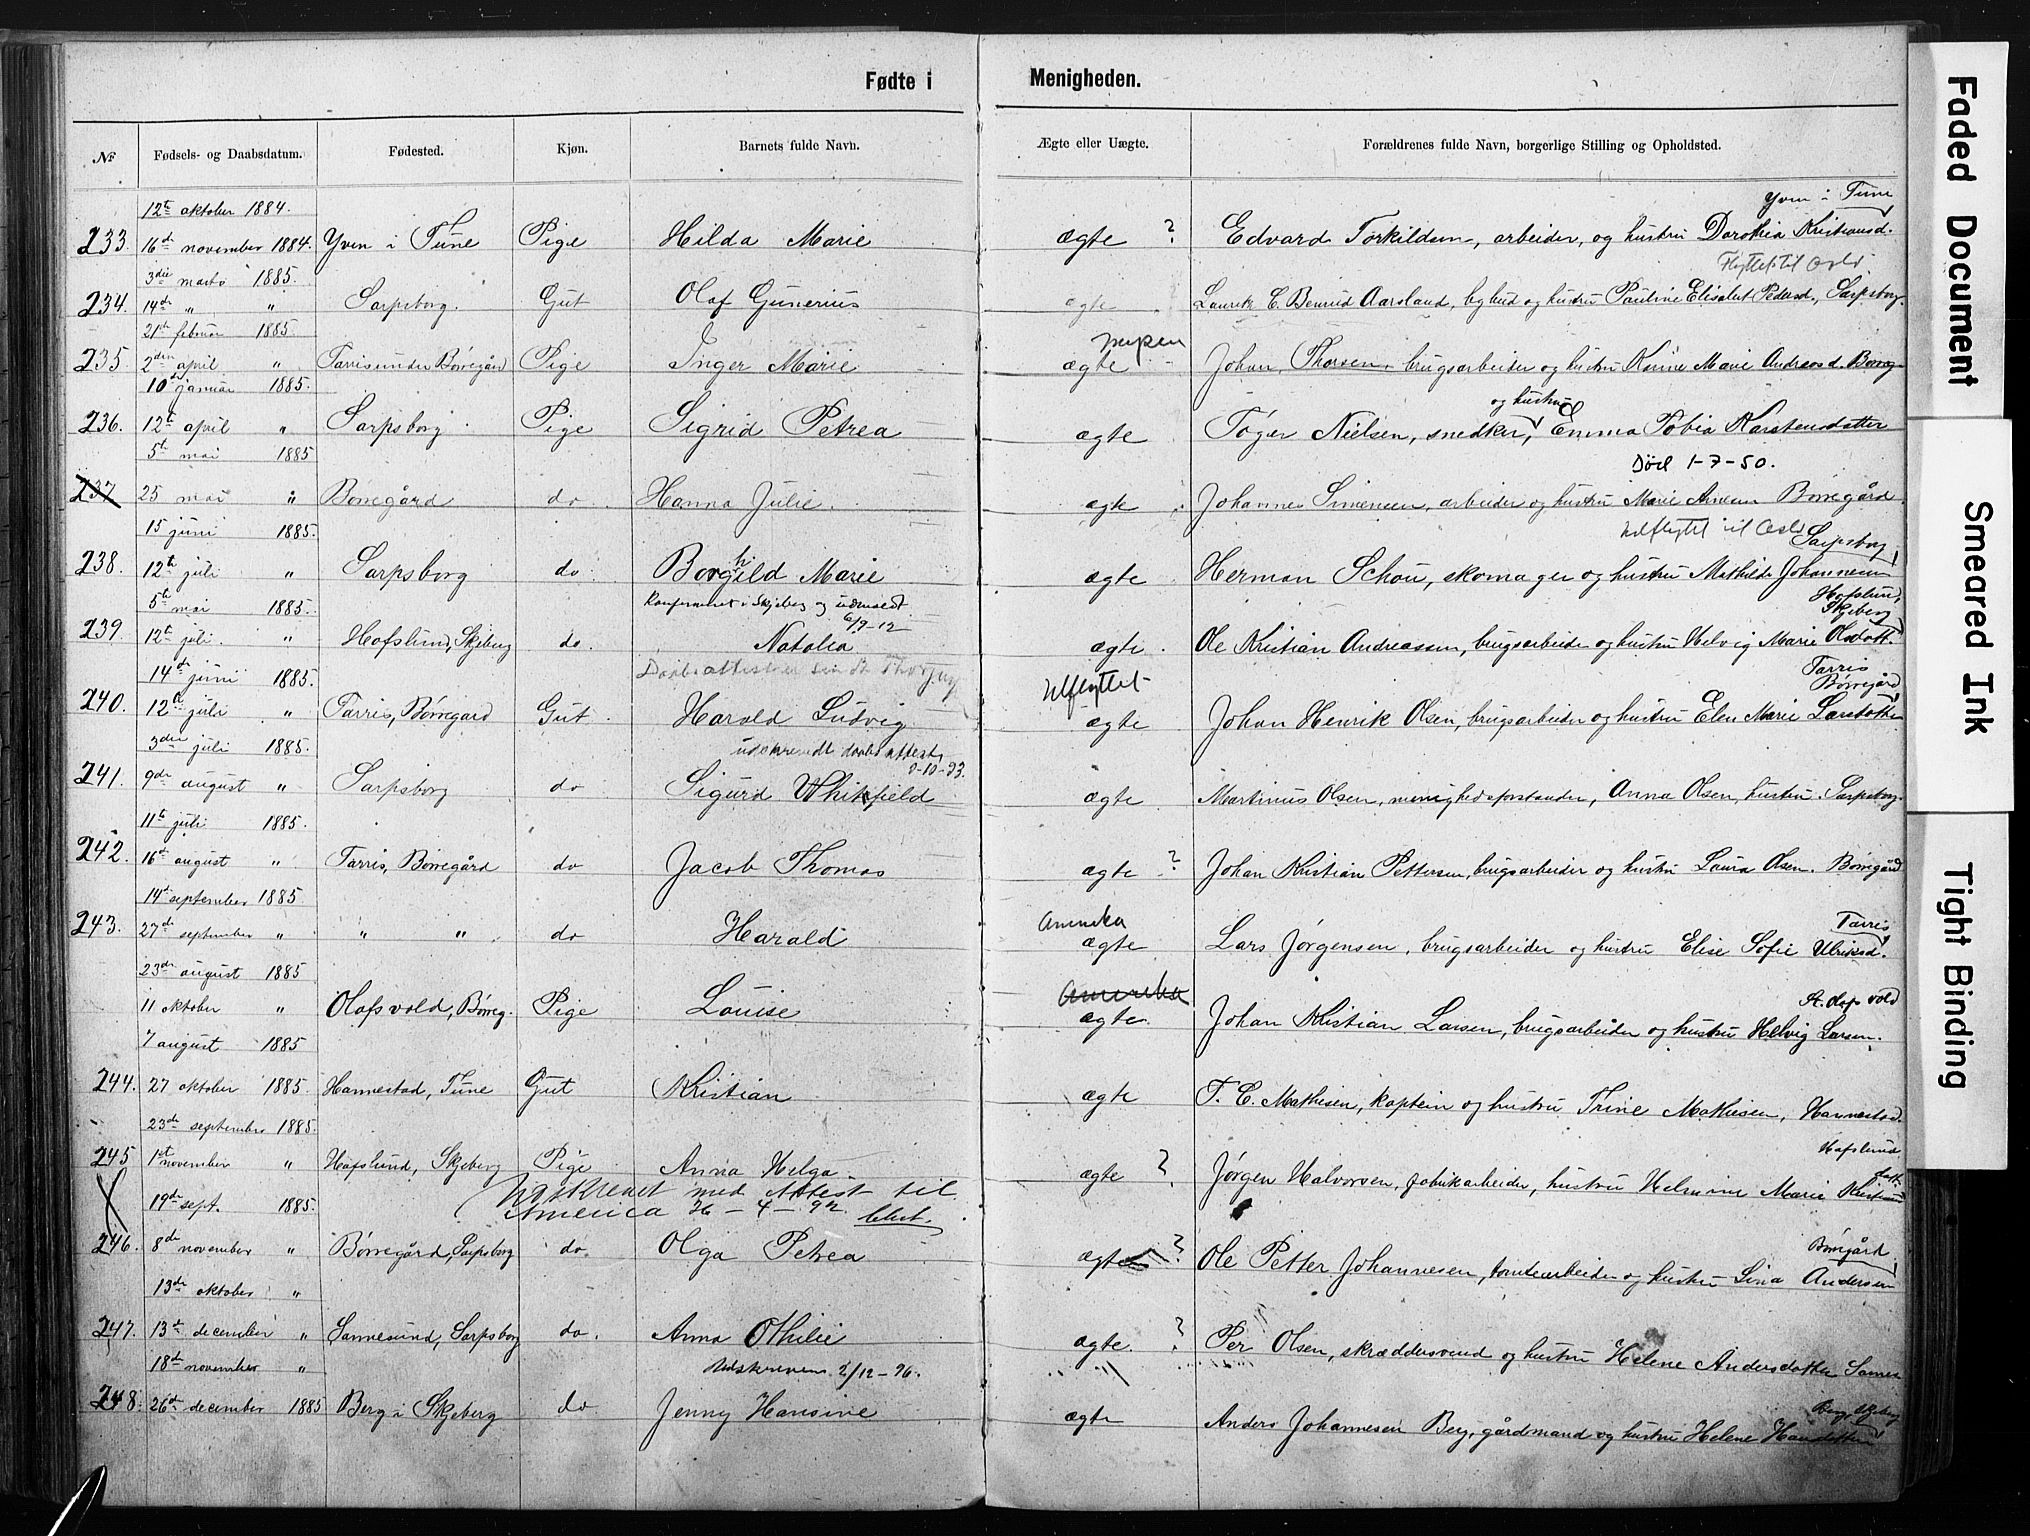 Fødte i Menigheden.
№ Fødsels- og Daabsdatum. Fødested. Kjøn. Barnets fulde Navn. Ægte eller Uægte. Forældrenes fulde Navn, borgerlige Stilling og Opholdsted.
12te oktober 1884. Yven i Tune
233. 16de november 1884. Yven i Tune Pige Hilda Marie ægte ? Edvard Torkildsen, arbeider, og hustru Dorothia Kristiansd.
3die marts 1885. Flyttet til Oslo.
234. 14de " " Sarpsborg. Gut Olaf Gunerius ægte Lauritz E. Benrud Aarsland, og hustru Pauline Elisabet Pedersd, Sarpsborg.
21de februar 1885.
235. 2den april " Tarris under Borregård Pige Inger Marie ægte Johan Thorsen, brugsarbeider og hustru Karine Marie Andreasd. Borreg
10de januar 1885. og hustru
236. 12te april " Sarpsborg Pige Sigrid Petrea ægte Tøger Nielsen, snedker, Emma Tobia Karstensdatter
5te mai 1885 Død 1-7-50.
237 25 mai " Borregård do Hanna Julie. ægte Johannes Simensen, arbeider og hustru Marie Borregård
15 juni 1885. Udflyttet til Oslo Sarpsborg
238. 12te juli " Sarpsborg do Borghild Marie ægte Herman Schou, skomager og hustru Mathilde Johannesen
5te mai 1885. Konfirmeret i Skjeberg og udmeldt 6/9-12 Hafslund, Skjeberg
239. 12te juli. " Hafslund, Skjeberg do. Natalia ægte. Ole Kristian Andreassen, brugsarbeider og hustru Helvig Marie Olsdatt.
14de juni 1885. Daabsattest Udflyttet Tarris Borregård
240. 12te juli " Tarris, Borregard Gut. Harald Ludvig ægte Johan Henrik Olsen, brugsarbeider og hustru Elen Marie Larsdatter
3die juli 1885. udskrevdt daabsattest 9-10-93.
241. 9de august " Sarpsborg do Sigurd Whitefield ægte Martinus Olsen, menighedsforstander, Anna Olsen, hustru. Sarpsborg.
11te juli 1885.
242. 16de august " Tarris, Borregård do Jacob Thomas ægte ? Johan Kristian Pettersen, brugsarbeider og hustru Laura Olsen. Borregård
14de september 1885 Amerika Tarris
243. 27de september " " " do Harald ægte Lars Jørgensen, brugsarbeider og hustru Elise Sofie Ulriksd.
23de august 1885 Amerika St. Olafs vold
11 oktober " Olafsvold, Borreg. Pige Louise ægte. Johan Kristian Larsen, brugsarbeider og hustru Helvig Larsen.
7 august 1885
244. 27 oktober 1885. Hannestad, Tune Gut Kristian ægte T. C. Mathesen, kaptein og hustru Trine Mathiesen, Hannestad.
23de september 1885. Hafslund
245 1ste november " Hafslund, Skjeberg Pige Anna Helga. ægte ? Jørgen Halvorsen, fabrikarbeider, hustru Helmine Marie Kristians
datt.
19de sept. 1885. Udskrevet med Attest til America 26-4-92.
246. 8de november " Borregård, Sarpsborg do. Olga Petrea ægte ? Ole Petter Johannesen, tomtearbeider og hustru Lina Andersen Borregård
13de oktober "
247. 13de december " Sannesund, Sarpsborg do. Anna Othilie ægte. ? Per Olsen, skræddersvend og hustru Helene Andersdatter Sannes
18de november " Udskreven 2/12-96.
248. 26de december 1885 Berg i Skjeberg do. Jenny Hansine ægte Anders Johannesen Berg, gårdmand og hustru Helene Hansdatter Berg, Skjeberg
Faded Document
Smeared Ink
Tight Binding